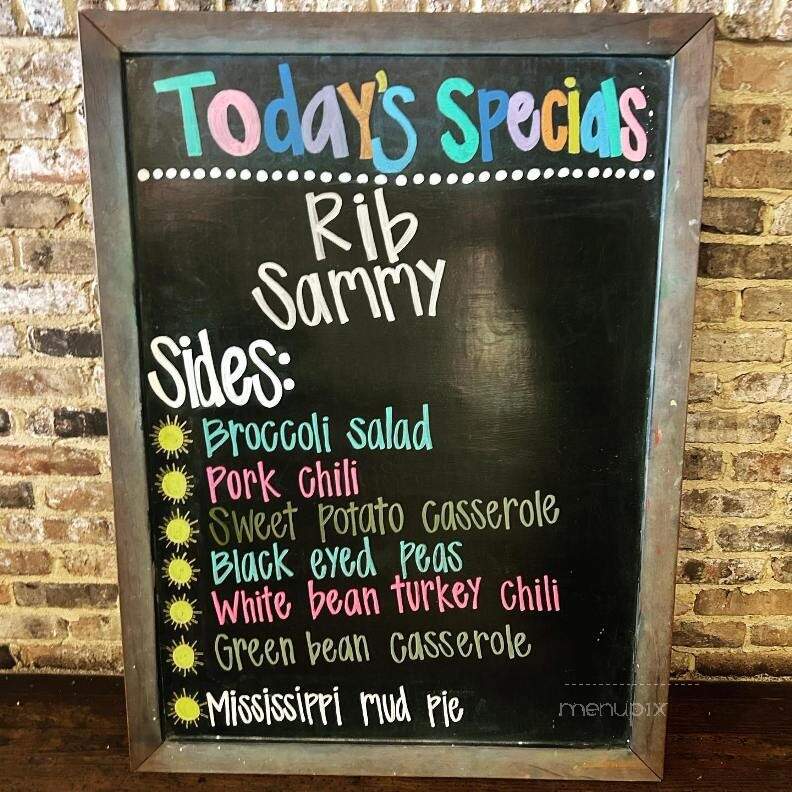 Today's Specials
Rib
Sammy
Sides:
Broccoli salad
Pork chili
Sweet potato casserole
Black eyed peas
White bean turkey chili
Green bean casserole
Mississippi mud pie
menupix